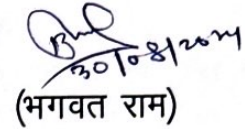 30/08/2024
(भगवत राम)